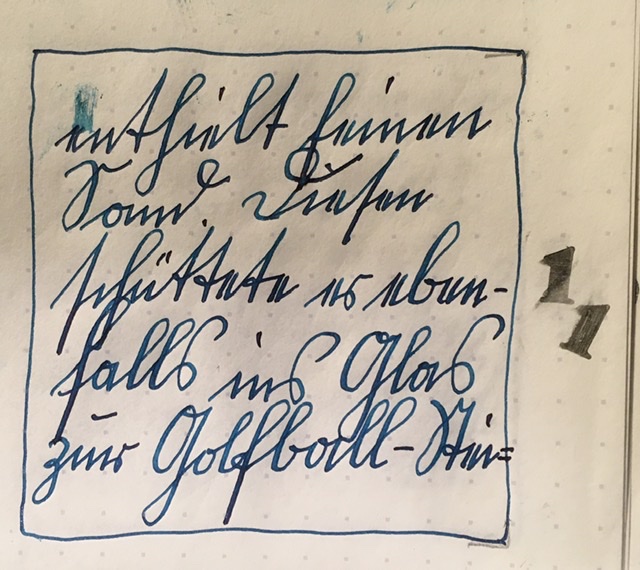 enthielt feinen
Sand. Diesen
schüttete er eben-
falls ins Glas
zur Golfball-Stei=
11